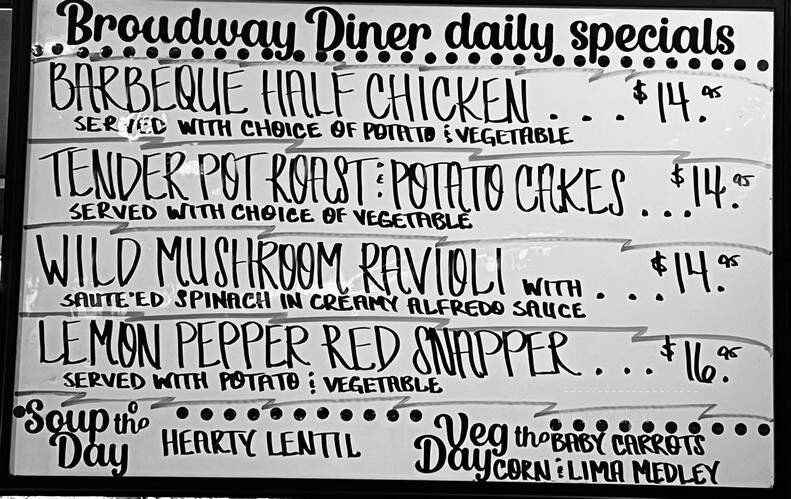 Broadway Diner daily specials
BARBEQUE HALF CHICKEN . . . $14.95
SERVED WITH CHOICE OF POTATO & VEGETABLE
TENDER POT ROAST & POTATO CAKES . . . $14.95
SERVED WITH CHOICE OF VEGETABLE
WILD MUSHROOM RAVIOLI WITH . . . $14.95
SAUTE'ED SPINACH IN CREAMY ALFREDO SAUCE
LEMON PEPPER RED SNAPPER . . . $16.95
SERVED WITH POTATO & VEGETABLE
Soup o the Day HEARTY LENTIL
Veg o the Day BABY CARROTS
CORN & LIMA MEDLEY